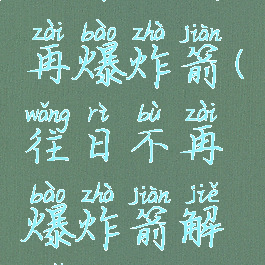 zài bào zhà jiàn
再爆炸箭(
wǎng rì bù zài
往日不再
bào zhà jiàn jiě
爆炸箭解